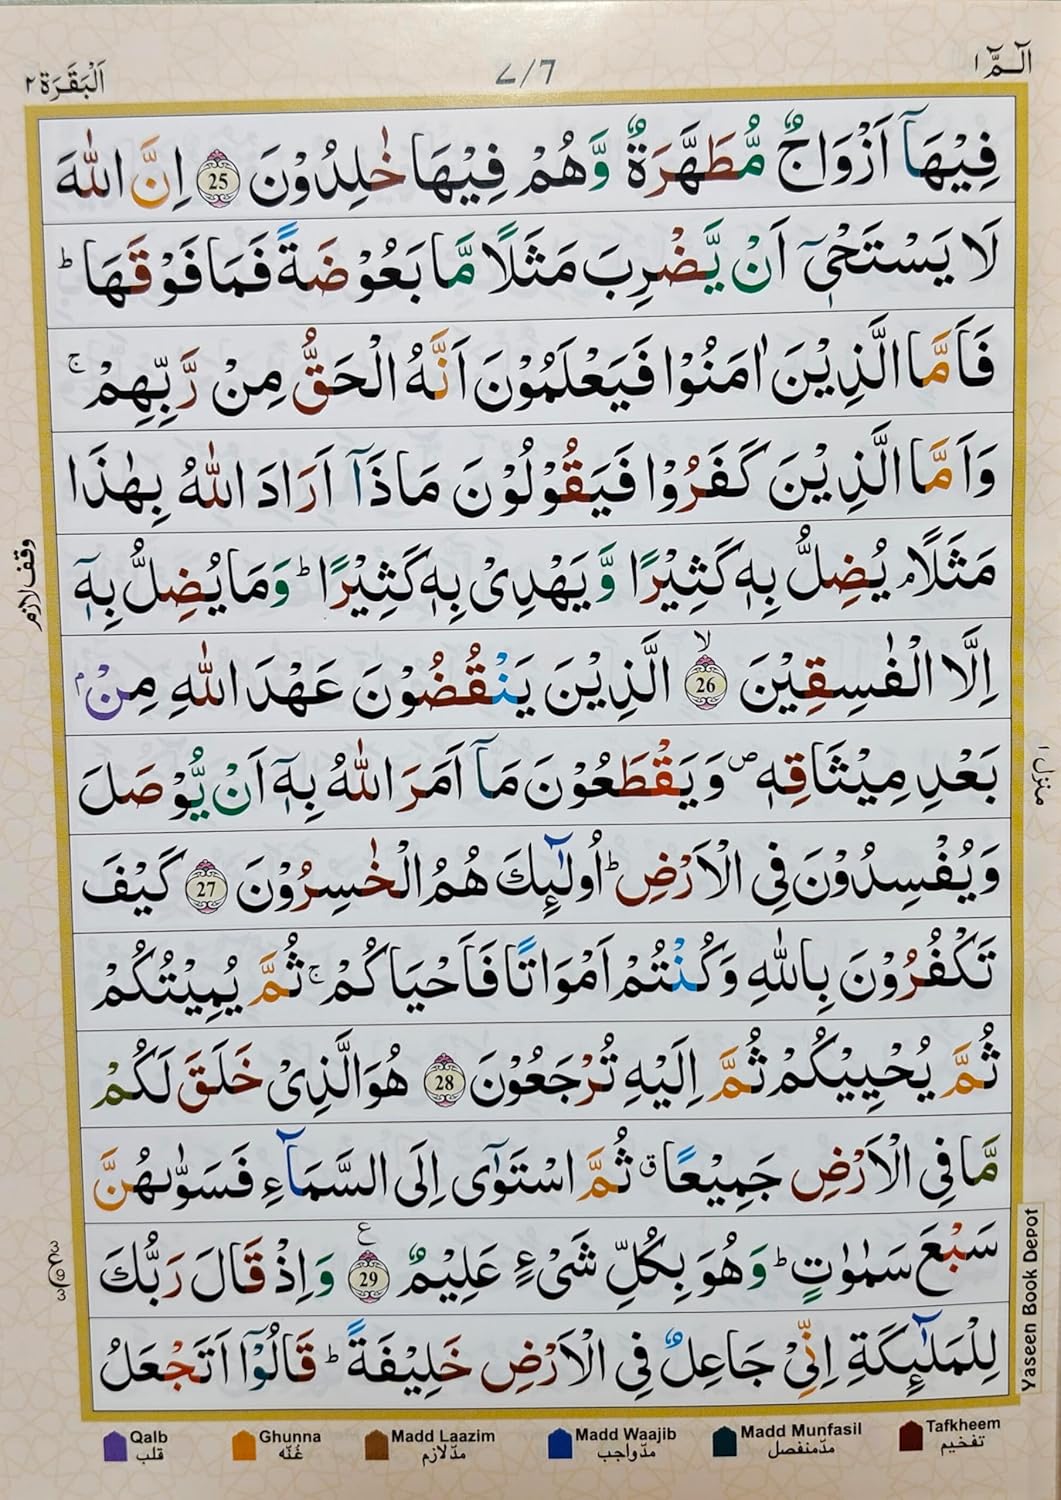 الٓمّٓ ١
7/7
اَلْبَقَرَة ٢
فِيْهَآ اَزْوَاجٌ مُّطَهَّرَةٌ وَّهُمْ فِيْهَا خٰلِدُوْنَ 25 اِنَّ اللّٰهَ
لَا يَسْتَحْىٖٓ اَنْ يَّضْرِبَ مَثَلًا مَّا بَعُوْضَةً فَمَا فَوْقَهَا ؕ
فَاَمَّا الَّذِيْنَ اٰمَنُوْا فَيَعْلَمُوْنَ اَنَّهُ الْحَقُّ مِنْ رَّبِّهِمْ ۚ
وَاَمَّا الَّذِيْنَ كَفَرُوْا فَيَقُوْلُوْنَ مَاذَآ اَرَادَ اللّٰهُ بِهٰذَا
مَثَلًا ۘ يُضِلُّ بِهٖ كَثِيْرًا وَّيَهْدِىْ بِهٖ كَثِيْرًا ؕ وَمَا يُضِلُّ بِهٖٓ
اِلَّا الْفٰسِقِيْنَ 26 ۙ الَّذِيْنَ يَنْقُضُوْنَ عَهْدَ اللّٰهِ مِنْۢ
بَعْدِ مِيْثَاقِهٖ ص وَيَقْطَعُوْنَ مَآ اَمَرَ اللّٰهُ بِهٖٓ اَنْ يُّوْصَلَ
وَيُفْسِدُوْنَ فِى الْاَرْضِ ؕ اُولٰٓئِكَ هُمُ الْخٰسِرُوْنَ 27 كَيْفَ
تَكْفُرُوْنَ بِاللّٰهِ وَكُنْتُمْ اَمْوَاتًا فَاَحْيَاكُمْ ۚ ثُمَّ يُمِيْتُكُمْ
ثُمَّ يُحْيِيْكُمْ ثُمَّ اِلَيْهِ تُرْجَعُوْنَ 28 هُوَ الَّذِىْ خَلَقَ لَكُمْ
مَّا فِى الْاَرْضِ جَمِيْعًا ق ثُمَّ اسْتَوٰٓى اِلَى السَّمَآءِ فَسَوّٰىهُنَّ
سَبْعَ سَمٰوٰتٍ ؕ وَهُوَ بِكُلِّ شَىْءٍ عَلِيْمٌ 29 ع وَاِذْ قَالَ رَبُّكَ
لِلْمَلٰٓئِكَةِ اِنِّىْ جَاعِلٌ فِى الْاَرْضِ خَلِيْفَةً ؕ قَالُوْٓا اَتَجْعَلُ
وقف لازم
منزل ١
Yaseen Book Depot
Qalb Ghunna Madd Laazim Madd Waajib Madd Munfasil Tafkheem
قلب غُنّه مدّلازم مدّواجب مدّمنفصل تفخيم